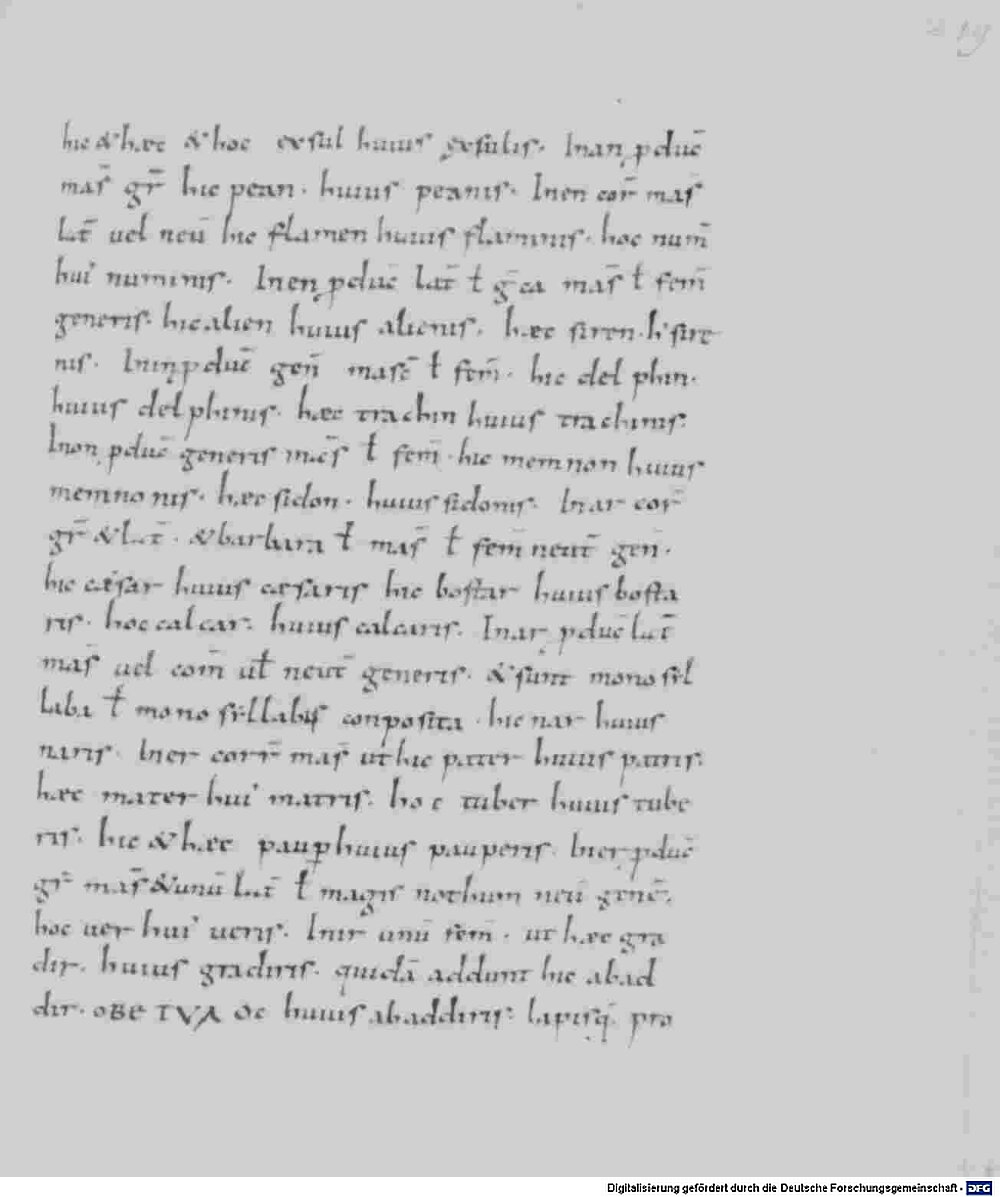 19
hic & hæc & hoc exsul huius exsulis· In an ꝓduc̄
mas̄ gr̄ hic pean· huius peanis· In en cor̄ mas̄
Lat̄ uel neū hic flamen huius flaminis· hoc num̄
hui' numinis· In en ꝓduc̄ Lat̄ ł gͣca mas̄ ł fem̄
generis· hic alien huius alienis· hæc siren· h' sire
nis· In in ꝓduc̄ gen̄ masc̄ ł fem̄· hic delphin·
huius delphinis· hæc trachin huius trachinis·
In on ꝓduc̄ generis mas̄ ł fem̄· hic memnon huius
memnonis· hæc sidon· huius sidonis· In ar cor̄
gr̄ & Lat̄· & barbara ł mas̄ ł fem̄ neut̄ gen̄·
hic cæsar huius cæsaris hic bostar huius bosta
ris· hoc calcar· huius calcaris· In ar ꝓduc̄ lat̄
mas̄ uel com̄ ul̄ neut̄ generis· & sunt monosil
laba ł monosillabis conposita· hic nar huius
naris· In er corr̄ mas̄ ut hic pater huius patris·
hæc mater hui' matris· hoc tuber huius tube
ris· hic & hæc paup̲ huius pauperis· In er ꝓduc̄
gr̄ mas̄ & unū Lat̄ ł magis nothum neū gene᷒·
hoc uer hui' ueris· In ir unū fem̄· ut hæc gra
dir· huius gradiris· quidā addunt hic abad
dir· OBETVΛOC huius abaddiris· lapisq· pro
Digitalisierung gefördert durch die Deutsche Forschungsgemeinschaft - DFG